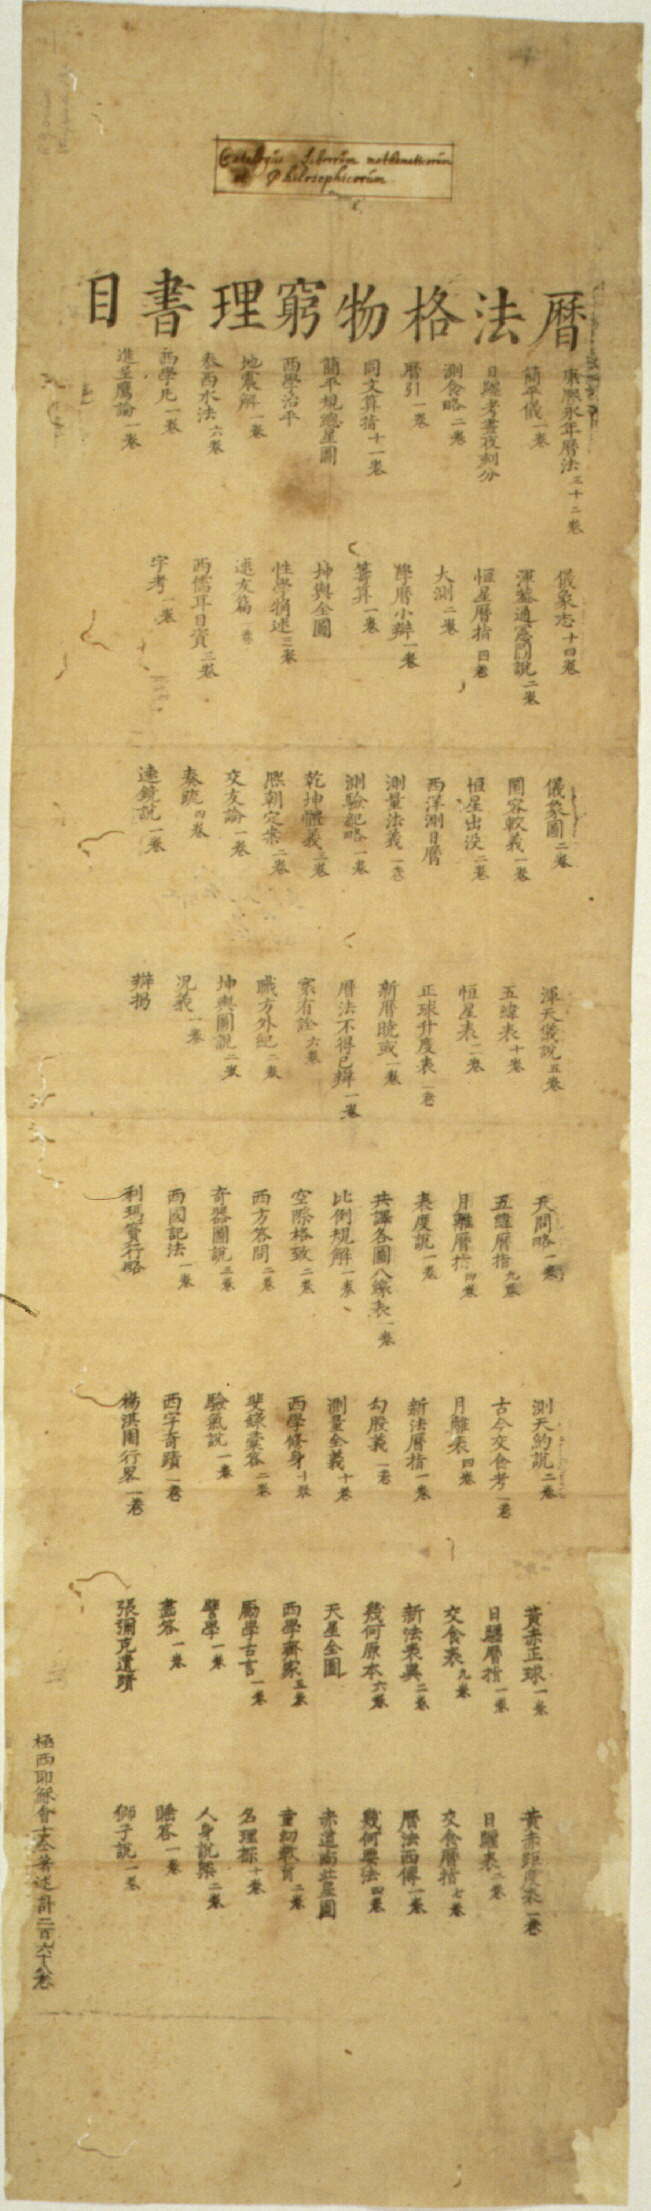 Catalogus Librorum mathematicorum
et Philosophicorum
曆法格物窮理書目
康熙永年曆法三十二卷
簡平儀一卷
日躔考晝夜刻分
測食略二卷
曆引一卷
同文算指十一卷
簡平規總星圖
西學治平
地震解一卷
泰西水法六卷
西學凡一卷
進呈鷹論一卷
儀象志十四卷
渾蓋通憲圖說二卷
恒星曆指四卷
大測二卷
學曆小辯一卷
籌算一卷
坤輿全圖
性學觕述三卷
逑友篇
西儒耳目資三卷
字考一卷
儀象圖二卷
圜容較義一卷
恒星出沒二卷
西洋測日曆
測量法義一卷
測驗紀略一卷
乾坤體義三卷
熙朝定案二卷
交友論一卷
奏疏四卷
遠鏡說一卷
渾天儀說五卷
五緯表十卷
恒星表二卷
正球升度表一卷
新曆曉或一卷
曆法不得已辯一卷
寰有詮六卷
職方外紀二卷
坤輿圖說二卷
況義一卷
辯揭
天問略一卷
五緯曆指九卷
月離曆指四卷
表度說一卷
共譯各圖八線表一卷
比例規解一卷
空際格致二卷
西方答問二卷
奇器圖說三卷
西國記法一卷
利瑪竇行略
測天約說二卷
古今交食考一卷
月離表四卷
新法曆指一卷
勾股義一卷
測量全義十卷
西學修身十卷
斐錄彙答二卷
驗氣說一卷
西字奇蹟一卷
楊淇園行畧一卷
黃赤正球一卷
日躔曆指一卷
交食表九卷
新法表異二卷
幾何原本六卷
天星全圖
西學齊家五卷
勵學古言一卷
譬學一卷
畫答一卷
張彌克遺蹟
黃赤距度表一卷
日躔表一卷
交食曆指七卷
曆法西傳一卷
幾何要法四卷
赤道南北星圖
童幼教育二卷
名理探十卷
人身說槩二卷
睡答一卷
獅子說一卷
極西耶穌會士仝著述計二百六十八卷